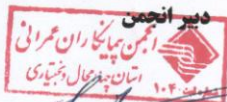 دبیر انجمن
انجمن پیمانکاران عمرانی
استان چهارمحال و بختیاری